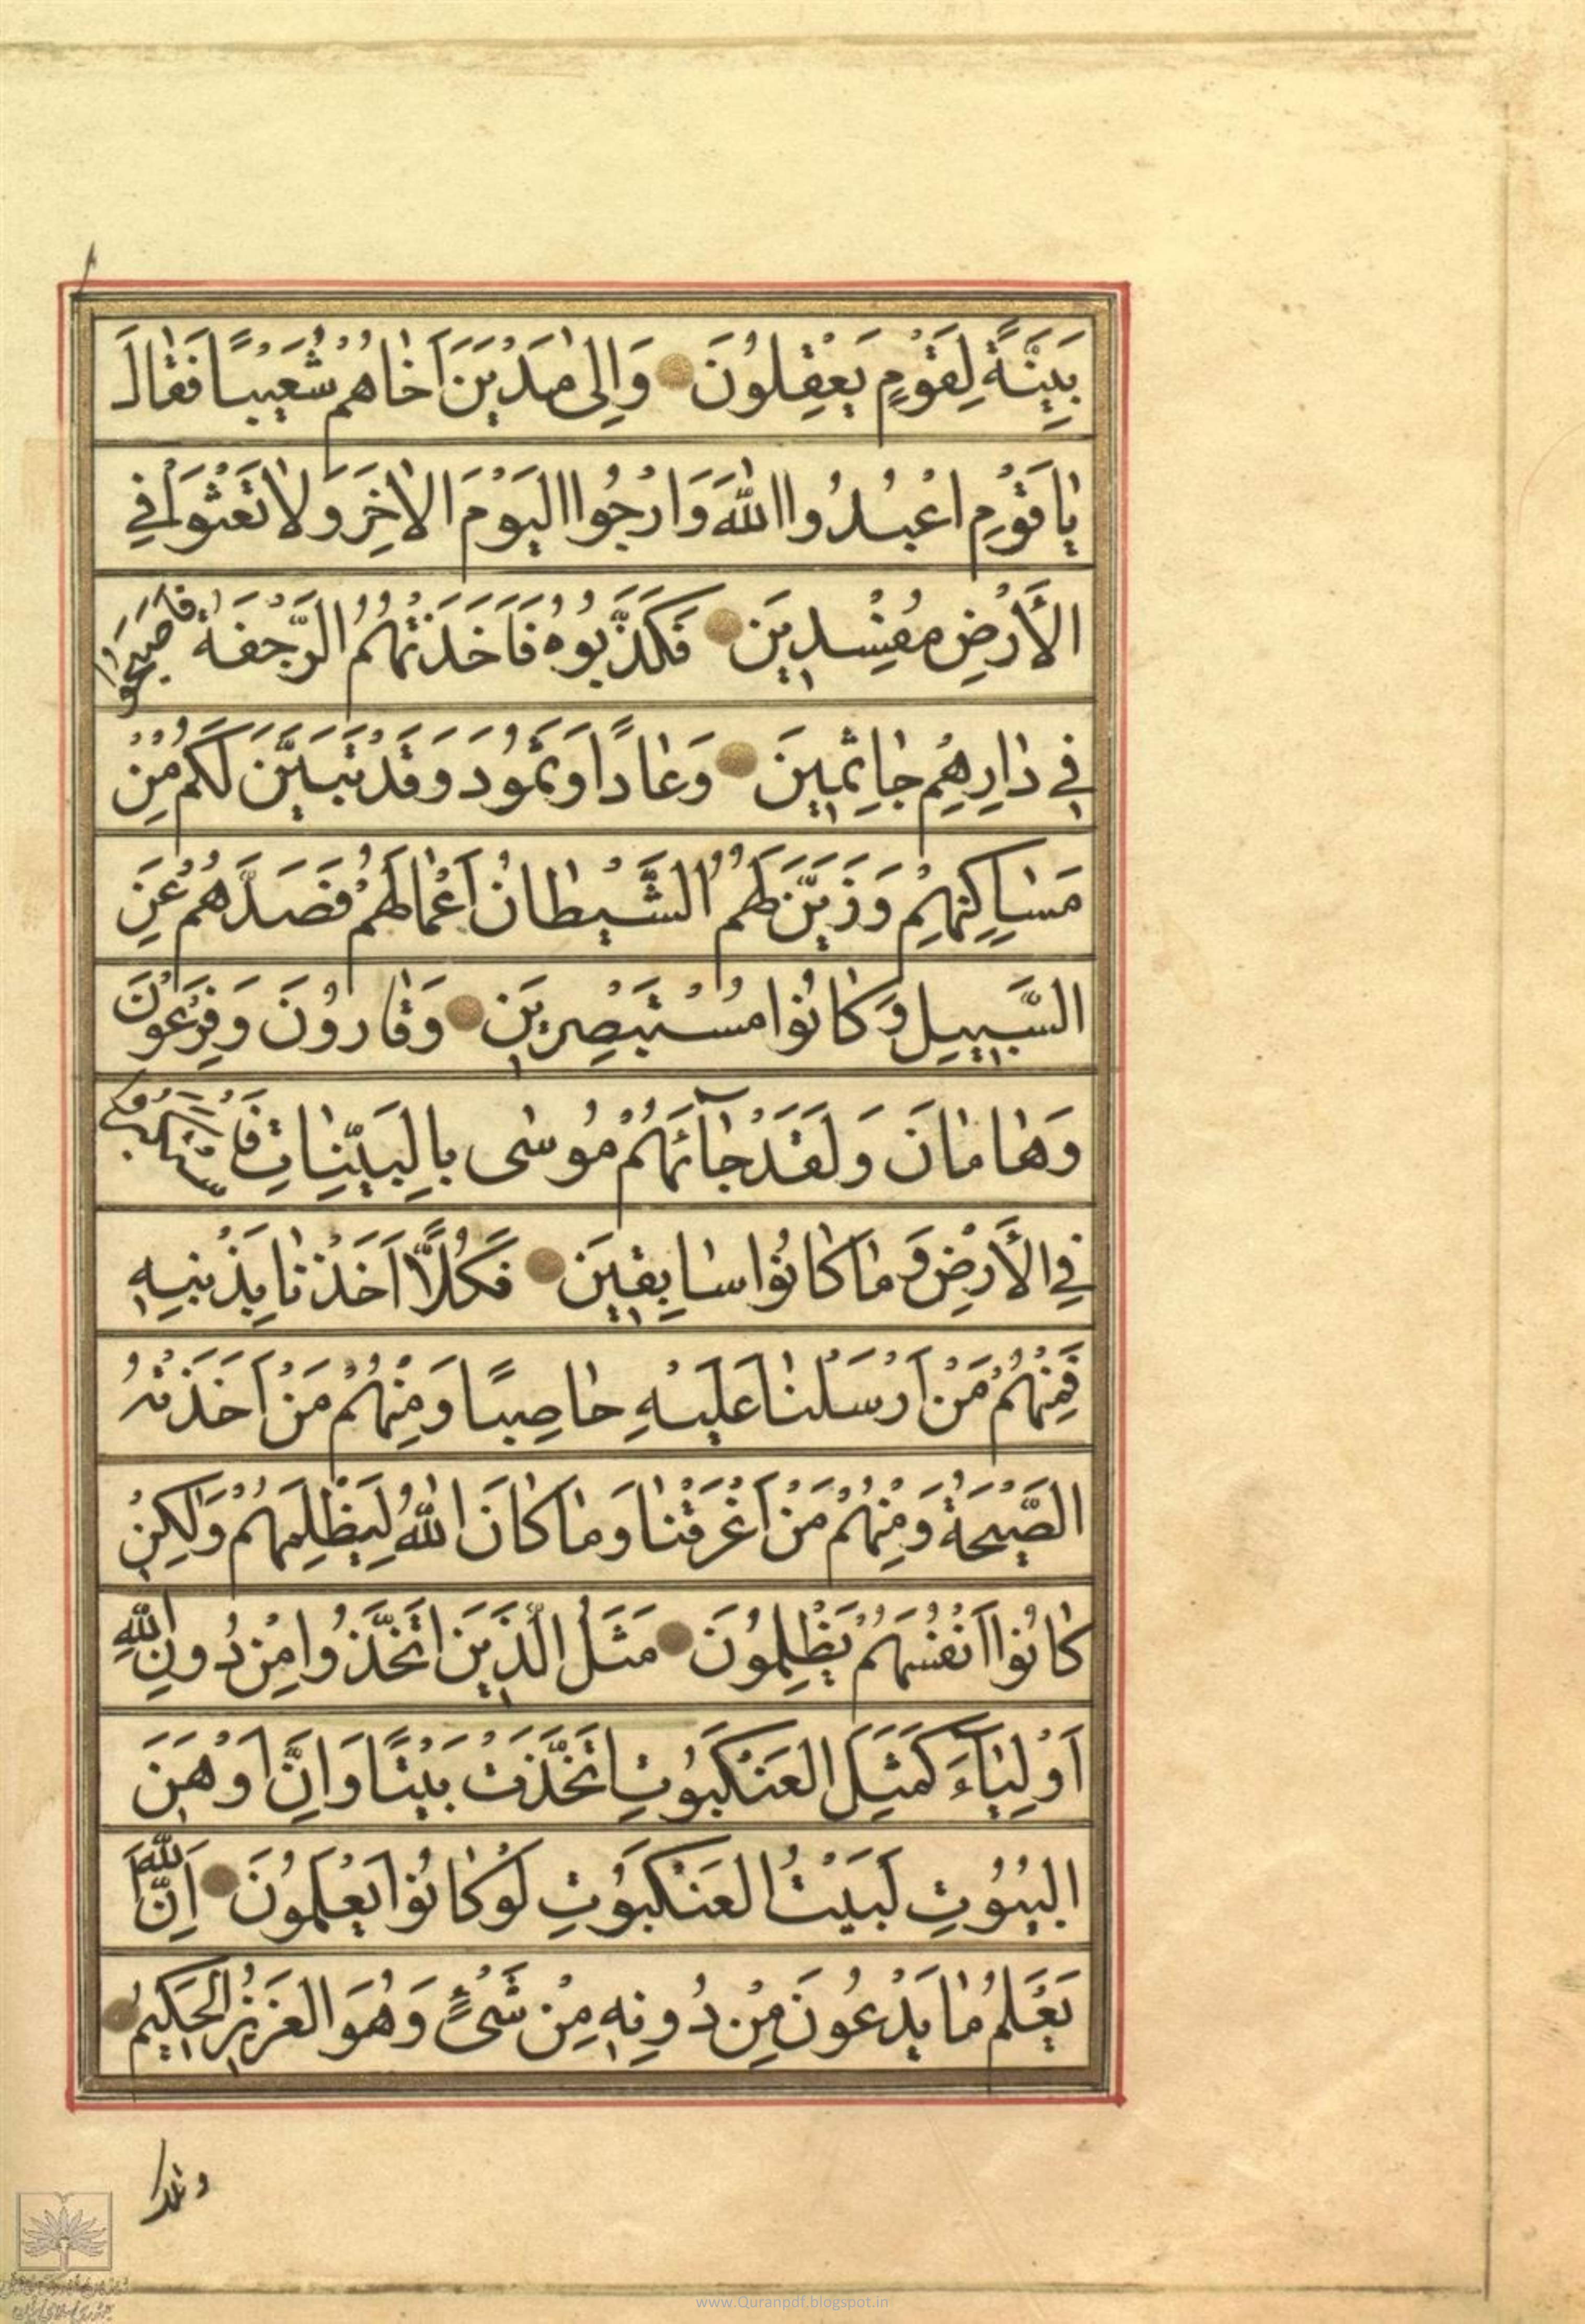 بَيِّنَةً لِقَوْمٍ يَعْقِلُونَ وَاِلىٰ مَدْيَنَ اَخٰاهُمْ شُعَيْبًا فَقٰالَ
يٰا قَوْمِ اعْبُدُوا اللّٰهَ وَارْجُوا الْيَوْمَ الْاٰخِرَ وَلٰا تَعْثَوْا فِي
الْأَرْضِ مُفْسِدِينَ فَكَذَّبُوهُ فَاَخَذَتْهُمُ الرَّجْفَةُ فَاَصْبَحُوا
فِي دٰارِهِمْ جٰاثِمِينَ وَعٰادًا وَثَمُودَ وَقَدْ تَبَيَّنَ لَكُمْ مِنْ
مَسٰاكِنِهِمْ وَزَيَّنَ لَهُمُ الشَّيْطٰانُ اَعْمٰالَهُمْ فَصَدَّهُمْ عَنِ
السَّبِيلِ وَكٰانُوا مُسْتَبْصِرِينَ وَقٰارُونَ وَفِرْعَوْنَ
وَهٰامٰانَ وَلَقَدْ جٰآئَهُمْ مُوسٰى بِالْبَيِّنٰاتِ فَاسْتَكْبَرُوا
فِي الْأَرْضِ وَمٰا كٰانُوا سٰابِقِينَ فَكُلًّا اَخَذْنٰا بِذَنْبِهِ
فَمِنْهُمْ مَنْ اَرْسَلْنٰا عَلَيْهِ حٰاصِبًا وَمِنْهُمْ مَنْ اَخَذَتْهُ
الصَّيْحَةُ وَمِنْهُمْ مَنْ اَغْرَقْنٰا وَمٰا كٰانَ اللّٰهُ لِيَظْلِمَهُمْ وَلٰكِنْ
كٰانُوا اَنْفُسَهُمْ يَظْلِمُونَ مَثَلُ الَّذِينَ اتَّخَذُوا مِنْ دُونِ اللّٰهِ
اَوْلِيٰآءَ كَمَثَلِ الْعَنْكَبُوتِ اتَّخَذَتْ بَيْتًا وَاِنَّ اَوْهَنَ
الْبُيُوتِ لَبَيْتُ الْعَنْكَبُوتِ لَوْ كٰانُوا يَعْلَمُونَ اِنَّ اللّٰهَ
يَعْلَمُ مٰا يَدْعُونَ مِنْ دُونِهِ مِنْ شَيْءٍ وَهُوَ الْعَزِيزُ الْحَكِيمُ
وتلك
www.Quranpdf.blogspot.in